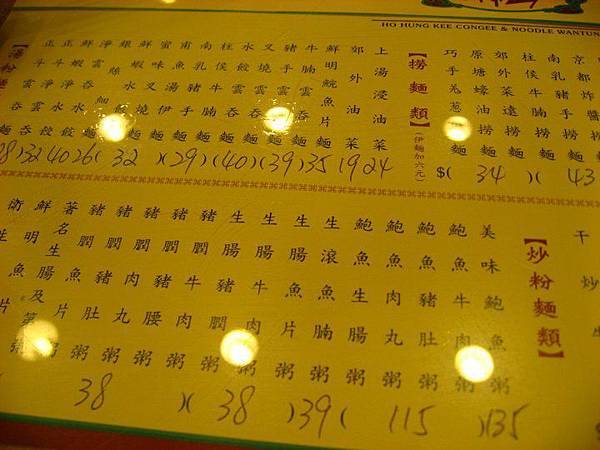 HO HUNG KEE CONGEE & NOODLE WANTUN
【湯粉麵
正斗雲吞麵
正斗淨雲吞
鮮蝦淨水餃
淨雲吞水餃
鮮蝦水餃麵
蜜味叉燒麵
甫魚湯伊麵
南乳豬手麵
柱侯牛腩麵
水餃雲吞麵
叉燒雲吞麵
豬手雲吞麵
牛腩雲吞麵
鮮明鯇魚片麵
郊外油菜
上湯浸油菜
8)32 40 26( 32 )(29)(40)(39)35 19 24
【撈麵類】(伊麵加六元)
巧手羌葱撈麵
原塘蠔油撈麵
郊外菜遠撈麵
柱侯牛腩撈麵
南乳豬手撈麵
京都炸醬
$( 34 )( 43
衛生魚片粥
著名生魚片粥
豬潤豬肚粥
豬潤肉丸粥
豬潤豬腰粥
豬潤牛肉粥
生腸豬潤粥
生腸牛肉粥
生腸魚片粥
生滾魚腩粥
鮑魚生腸粥
鮑魚肉丸粥
鮑魚豬肚粥
鮑魚牛肉粥
美味鮑魚粥
38 )( 38 )39( 115 )135
【炒粉麵類】
干炒